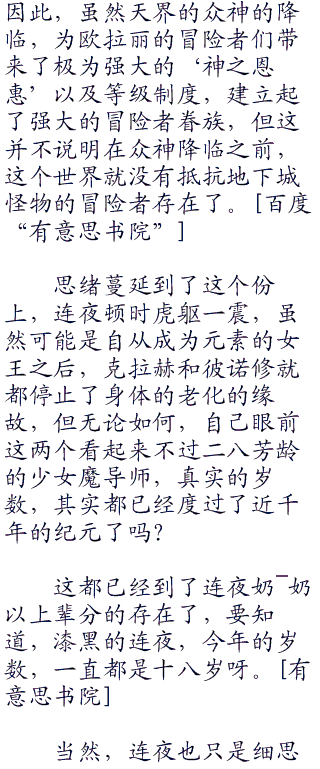 因此，虽然天界的众神的降
临，为欧拉丽的冒险者们带
来了极为强大的‘神之恩
惠’以及等级制度，建立起
了强大的冒险者眷族，但这
并不说明在众神降临之前，
这个世界就没有抵抗地下城
怪物的冒险者存在了。[百度
“有意思书院”]
思绪蔓延到了这个份
上，连夜顿时虎躯一震，虽
然可能是自从成为元素的女
王之后，克拉赫和彼诺修就
都停止了身体的老化的缘
故，但无论如何，自己眼前
这两个看起来不过二八芳龄
的少女魔导师，真实的岁
数，其实都已经度过了近千
年的纪元了吗？
这都已经到了连夜奶ˉ奶
以上辈分的存在了，要知
道，漆黑的连夜，今年的岁
数，一直都是十八岁呀。[有
意思书院]
当然，连夜也只是细思